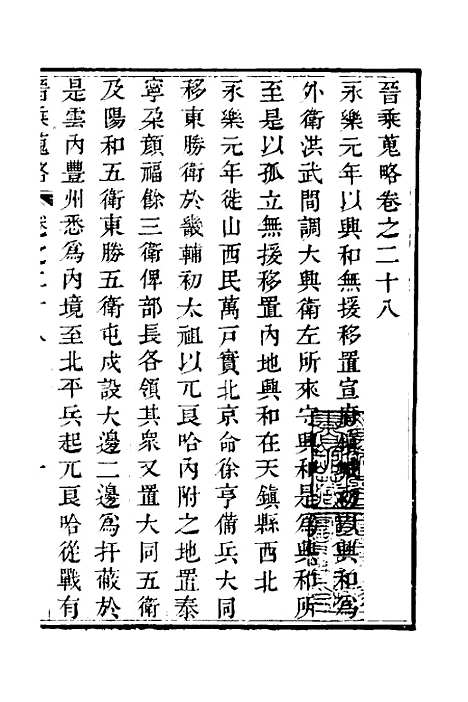 晉乘蒐略卷之二十八
永樂元年以興和無援移置宣府以興和爲
外衛洪武間調大興衛左所來守興和是爲興和所
至是以孤立無援移置內地興和在天鎮縣西北
永樂元年徙山西民萬戶實北京命徐亨備兵大同
移東勝衛於畿輔初太祖以兀良哈內附之地置泰
寧朶顏福餘三衛俾部長各領其衆又置大同五衛
及陽和五衛東勝五衛屯戍設大邊二邊爲扞蔽於
是雲內豐州悉爲內境至北平兵起兀良哈從戰有
晉乘蒐略 卷之二十八 一